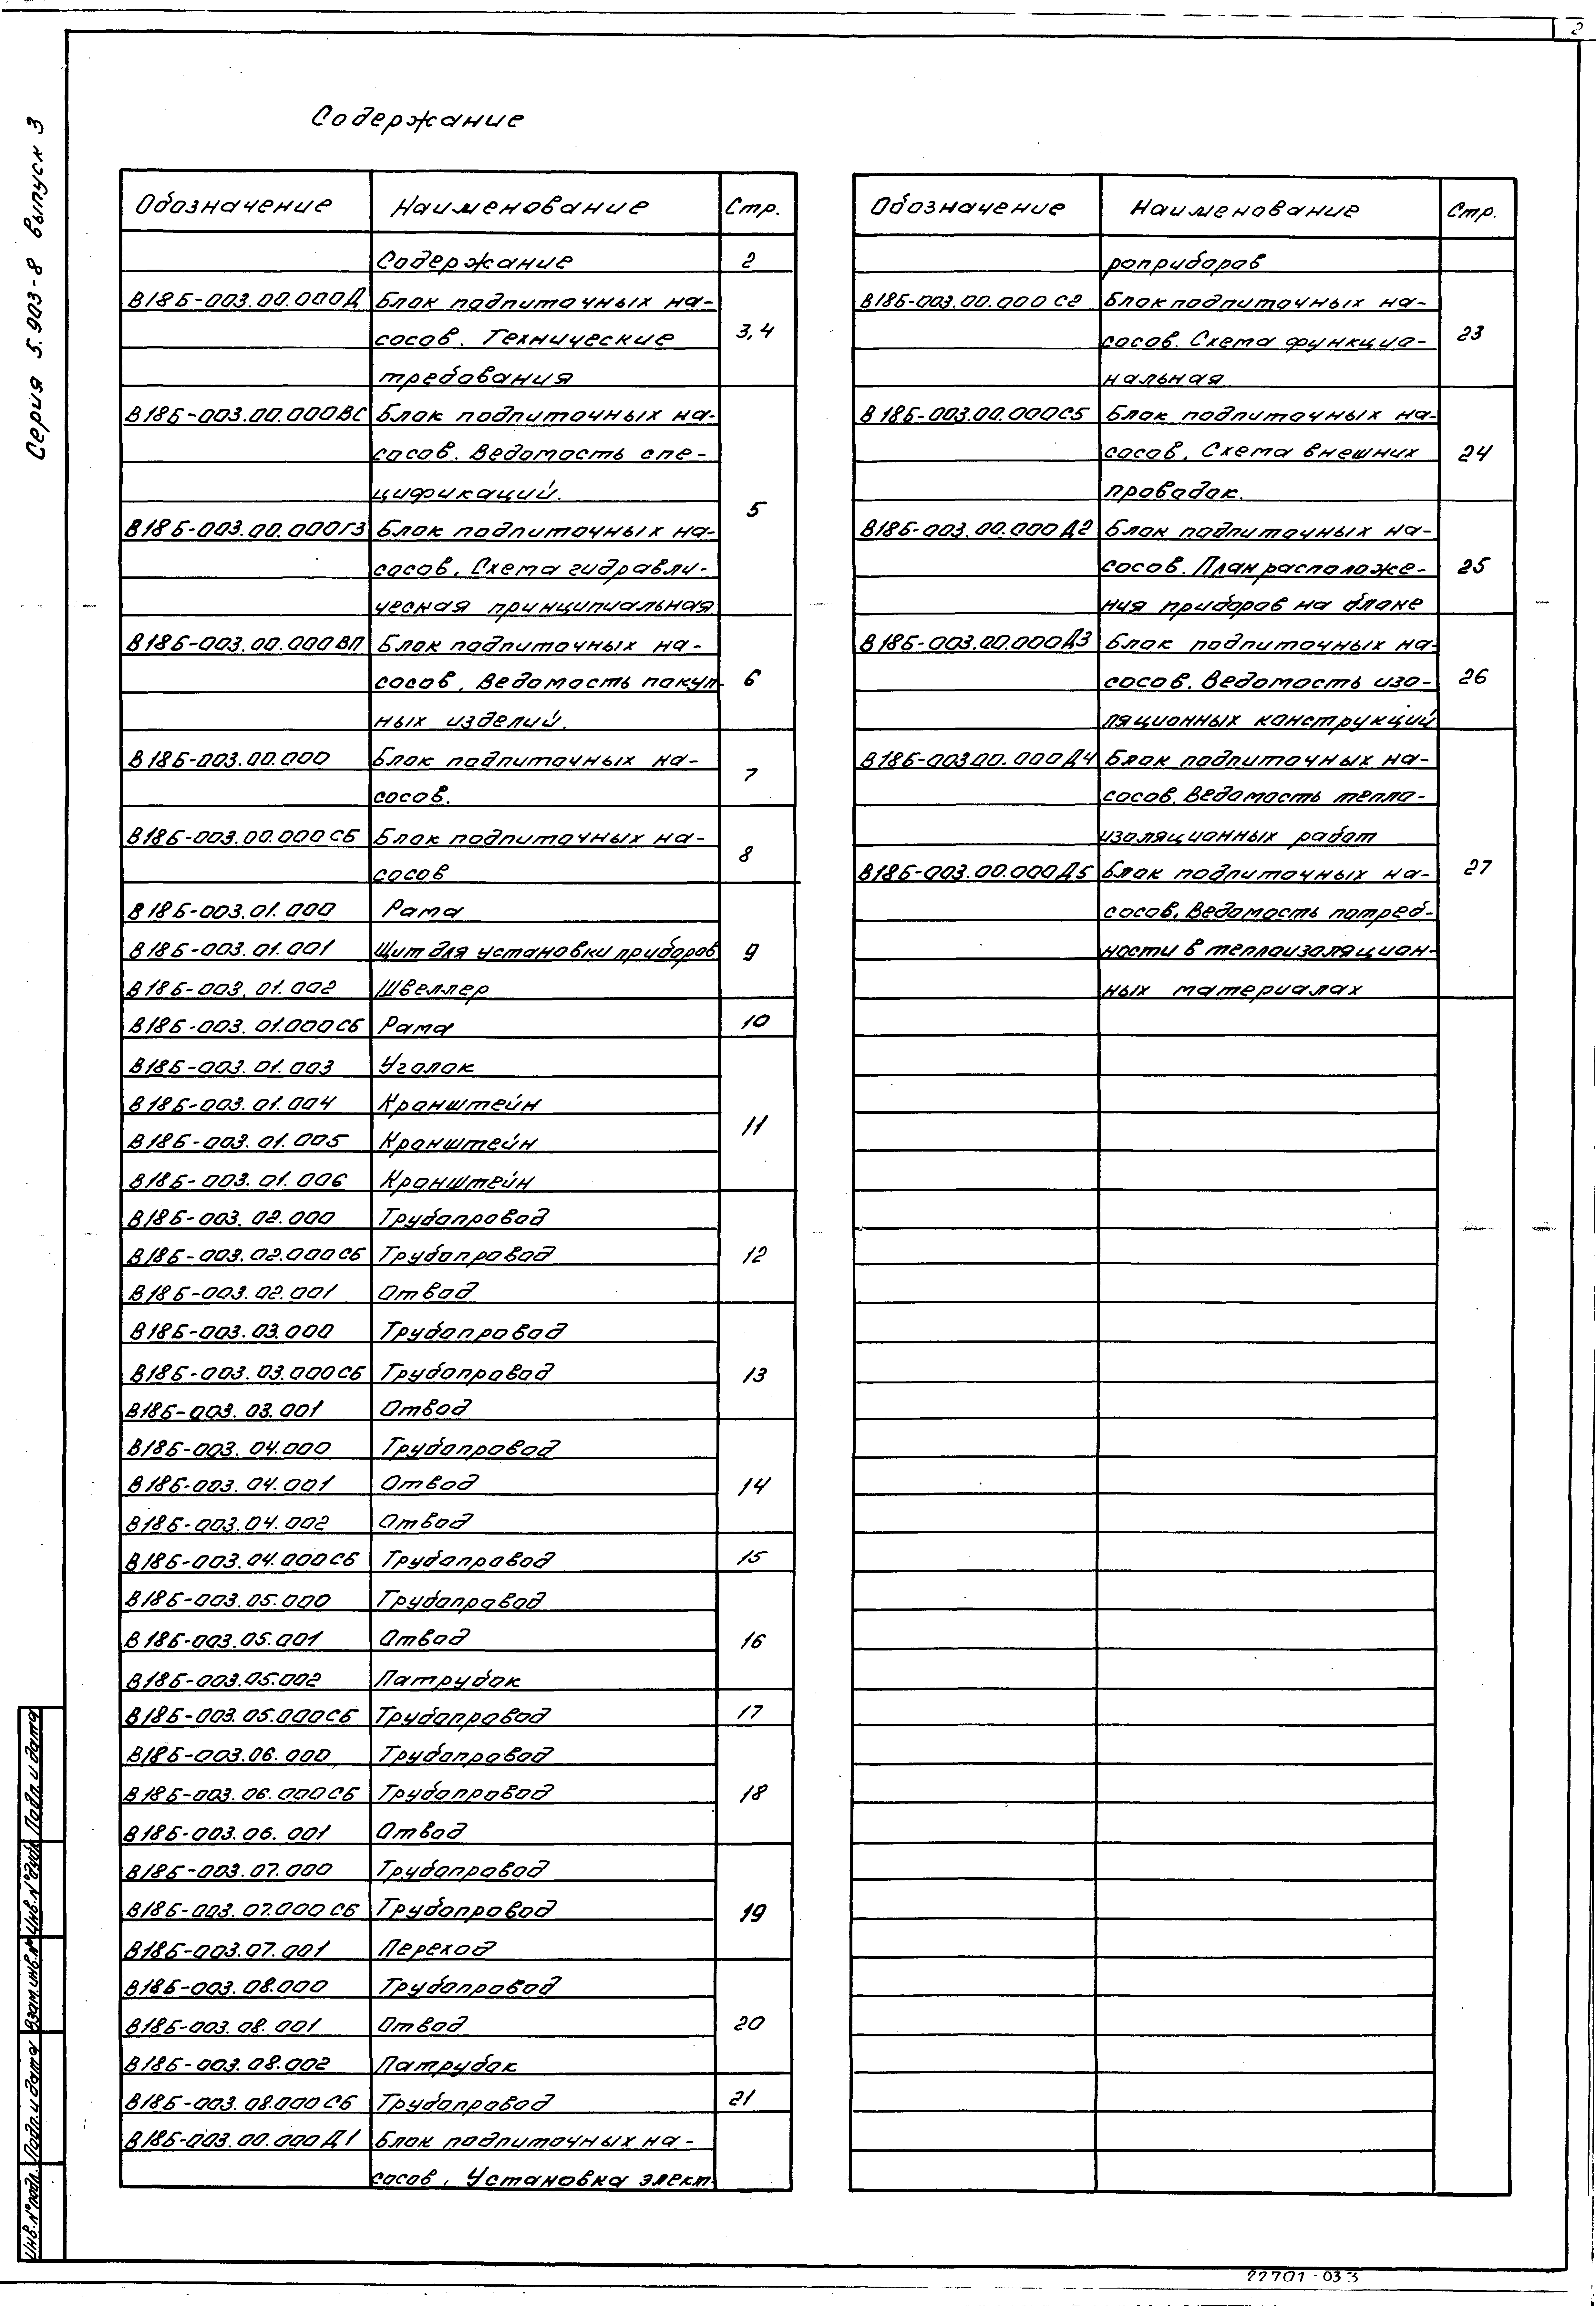 2
Серия 5.903-8 выпуск 3
Содержание
Обозначение Наименование Стр.
Содержание 2
В18Б-003.00.000Д Блок подпиточных на-
сосов. Технические 3,4
требования
В18Б-003.00.000ВС Блок подпиточных на-
сосов. Ведомость спе-
цификаций. 5
В18Б-003.00.000Г3 Блок подпиточных на-
сосов. Схема гидравли-
ческая принципиальная
В18Б-003.00.000ВП Блок подпиточных на-
сосов. Ведомость покуп- 6
ных изделий.
В18Б-003.00.000 Блок подпиточных на- 7
сосов.
В18Б-003.00.000СБ Блок подпиточных на- 8
сосов
В18Б-003.01.000 Рама
В18Б-003.01.001 Щит для установки приборов 9
В18Б-003.01.002 Швеллер
В18Б-003.01.000СБ Рама 10
В18Б-003.01.003 Уголок
В18Б-003.01.004 Кронштейн 11
В18Б-003.01.005 Кронштейн
В18Б-003.01.006 Кронштейн
В18Б-003.02.000 Трубопровод
В18Б-003.02.000СБ Трубопровод 12
В18Б-003.02.001 Отвод
В18Б-003.03.000 Трубопровод
В18Б-003.03.000СБ Трубопровод 13
В18Б-003.03.001 Отвод
В18Б-003.04.000 Трубопровод
В18Б-003.04.001 Отвод 14
В18Б-003.04.002 Отвод
В18Б-003.04.000СБ Трубопровод 15
В18Б-003.05.000 Трубопровод
В18Б-003.05.001 Отвод 16
В18Б-003.05.002 Патрубок
В18Б-003.05.000СБ Трубопровод 17
В18Б-003.06.000 Трубопровод
В18Б-003.06.000СБ Трубопровод 18
В18Б-003.06.001 Отвод
В18Б-003.07.000 Трубопровод
В18Б-003.07.000СБ Трубопровод 19
В18Б-003.07.001 Переход
В18Б-003.08.000 Трубопровод
В18Б-003.08.001 Отвод 20
В18Б-003.08.002 Патрубок
В18Б-003.08.000СБ Трубопровод 21
В18Б-003.00.000Д1 Блок подпиточных на-
сосов. Установка элект-
Обозначение Наименование Стр.
роприборов
В18Б-003.00.000С2 Блок подпиточных на-
сосов. Схема функцио- 23
нальная
В18Б-003.00.000С5 Блок подпиточных на-
сосов. Схема внешних 24
проводок.
В18Б-003.00.000Д2 Блок подпиточных на-
сосов. План расположе- 25
ния приборов на блоке
В18Б-003.00.000Д3 Блок подпиточных на-
сосов. Ведомость изо- 26
ляционных конструкций
В18Б-003.00.000Д4 Блок подпиточных на-
сосов. Ведомость тепло-
изоляционных работ
В18Б-003.00.000Д5 Блок подпиточных на- 27
сосов. Ведомость потреб-
ности в теплоизоляцион-
ных материалах
Инв.№подл. Подп.и дата Взам.инв.№ Инв.№дубл. Подп.и дата
22701-03 3